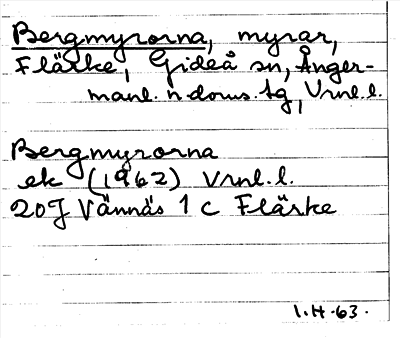 Bergmyrorna, myrar,
Flärke, Gideå sn, Ånger-
manl. n doms. tg, Vrnl. l.
Bergmyrorna
ek (1962) Vrnl. l.
20J Vännäs 1 c Flärke
I.H-63.